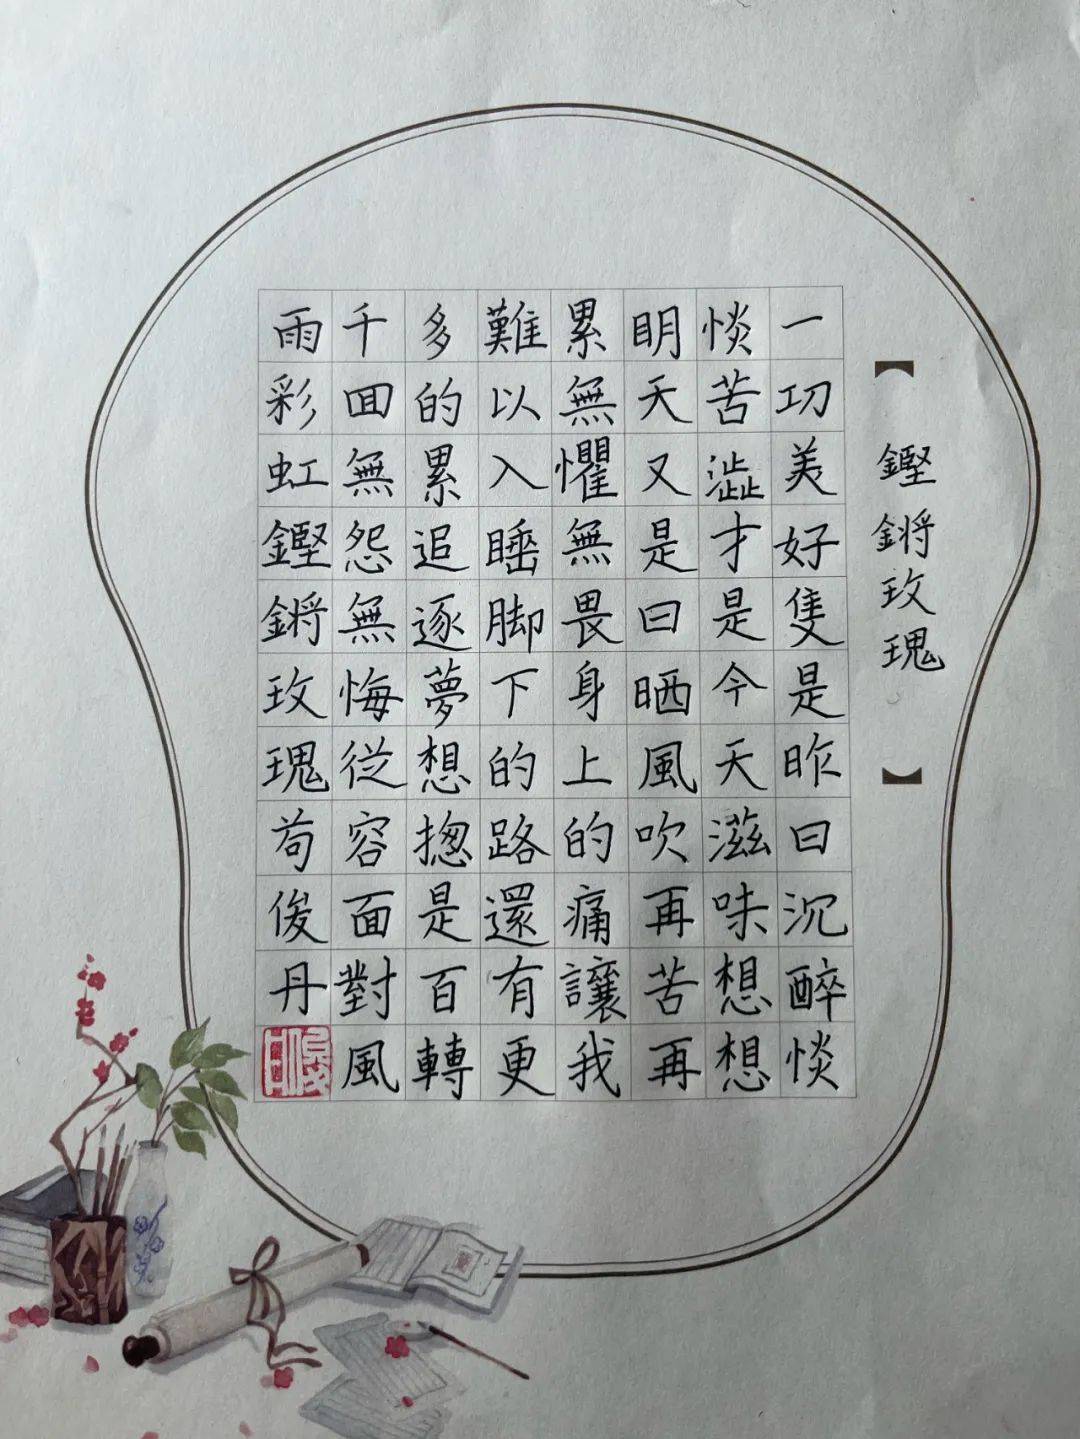 【鏗鏘玫瑰】
一切美好隻是昨日沉醉惔
惔苦澁才是今天滋味想想
明天又是日晒風吹再苦再
累無懼無畏身上的痛讓我
難以入睡脚下的路還有更
多的累追逐夢想揔是百轉
千回無怨無悔從容面對風
雨彩虹鏗鏘玫瑰苟俊丹